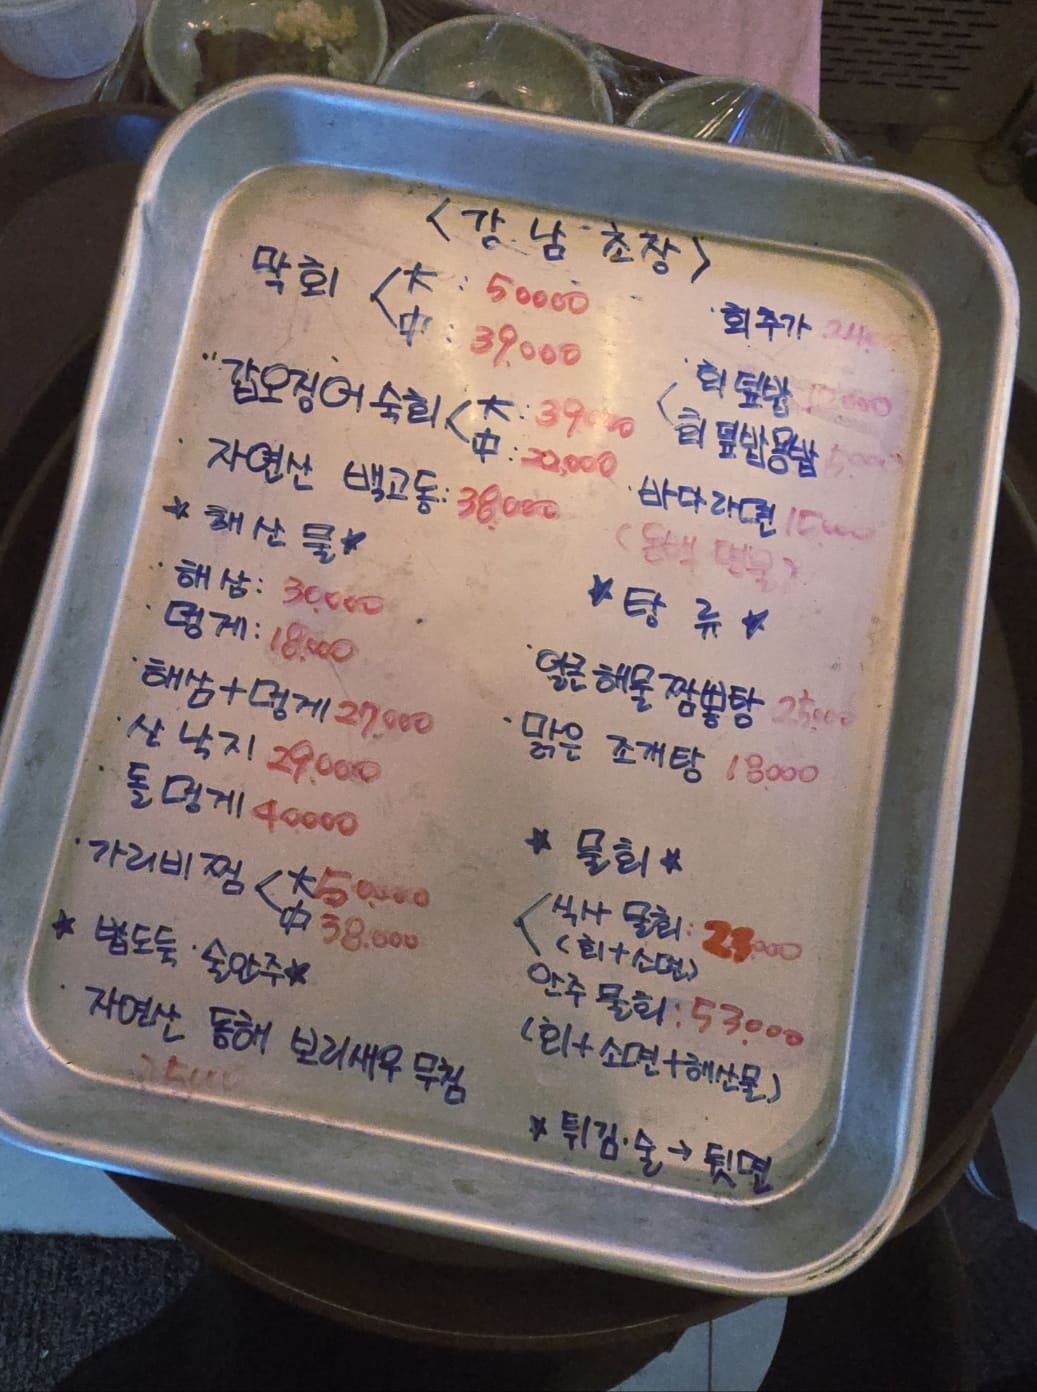 <강남 초장>
막회 < 大 : 50000
中 : 39,000
"갑오징어 숙회 < 大 : 39000
中 :
자연산 백고동 : 38,000
★ 해산물 ★
· 해삼 : 30,000
· 멍게 : 18,000
· 해삼+멍게 27,000
· 산낙지 29,000
· 돌멍게 40000
· 가리비찜 < 大 50,000
中 38,000
★ 밥도둑·술안주★
· 자연산 동해 보리새우무침
· 회추가
< 회덮밥
회덮밥곱밥
· 바다라면
★ 탕 류 ★
· 얼큰해물짬뽕탕 25,000
· 맑은 조개탕 18,000
★ 물회 ★
< 식사 물회 : 23,000
(회+소면)
안주 물회 : 53,000
(회+소면+해산물)
★ 튀김·술 → 뒷면